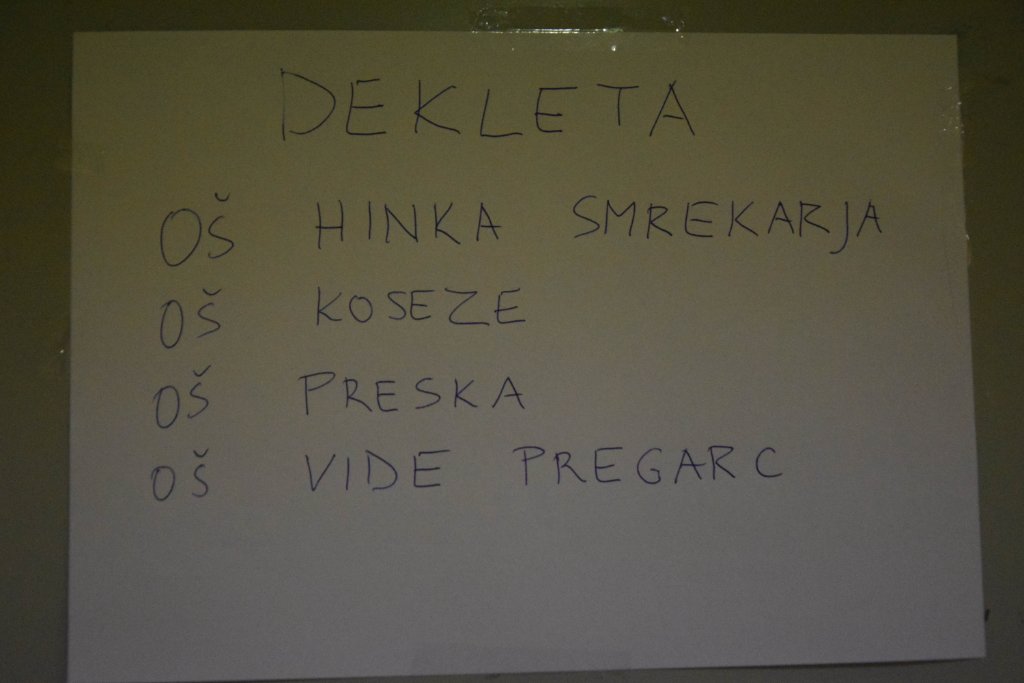 DEKLETA
OŠ HINKA SMREKARJA
OŠ KOSEZE
OŠ PRESKA
OŠ VIDE PREGARC